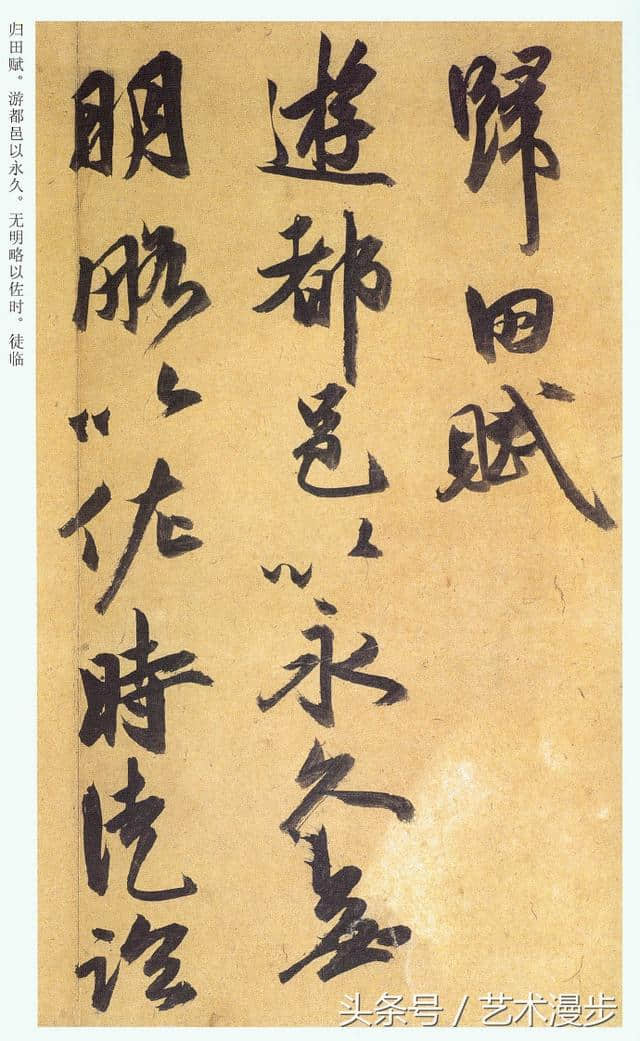 歸田賦
遊都邑以永久無
明略以佐時徒臨
归田赋。游都邑以永久。无明略以佐时。徒临
头条号 / 艺术漫步